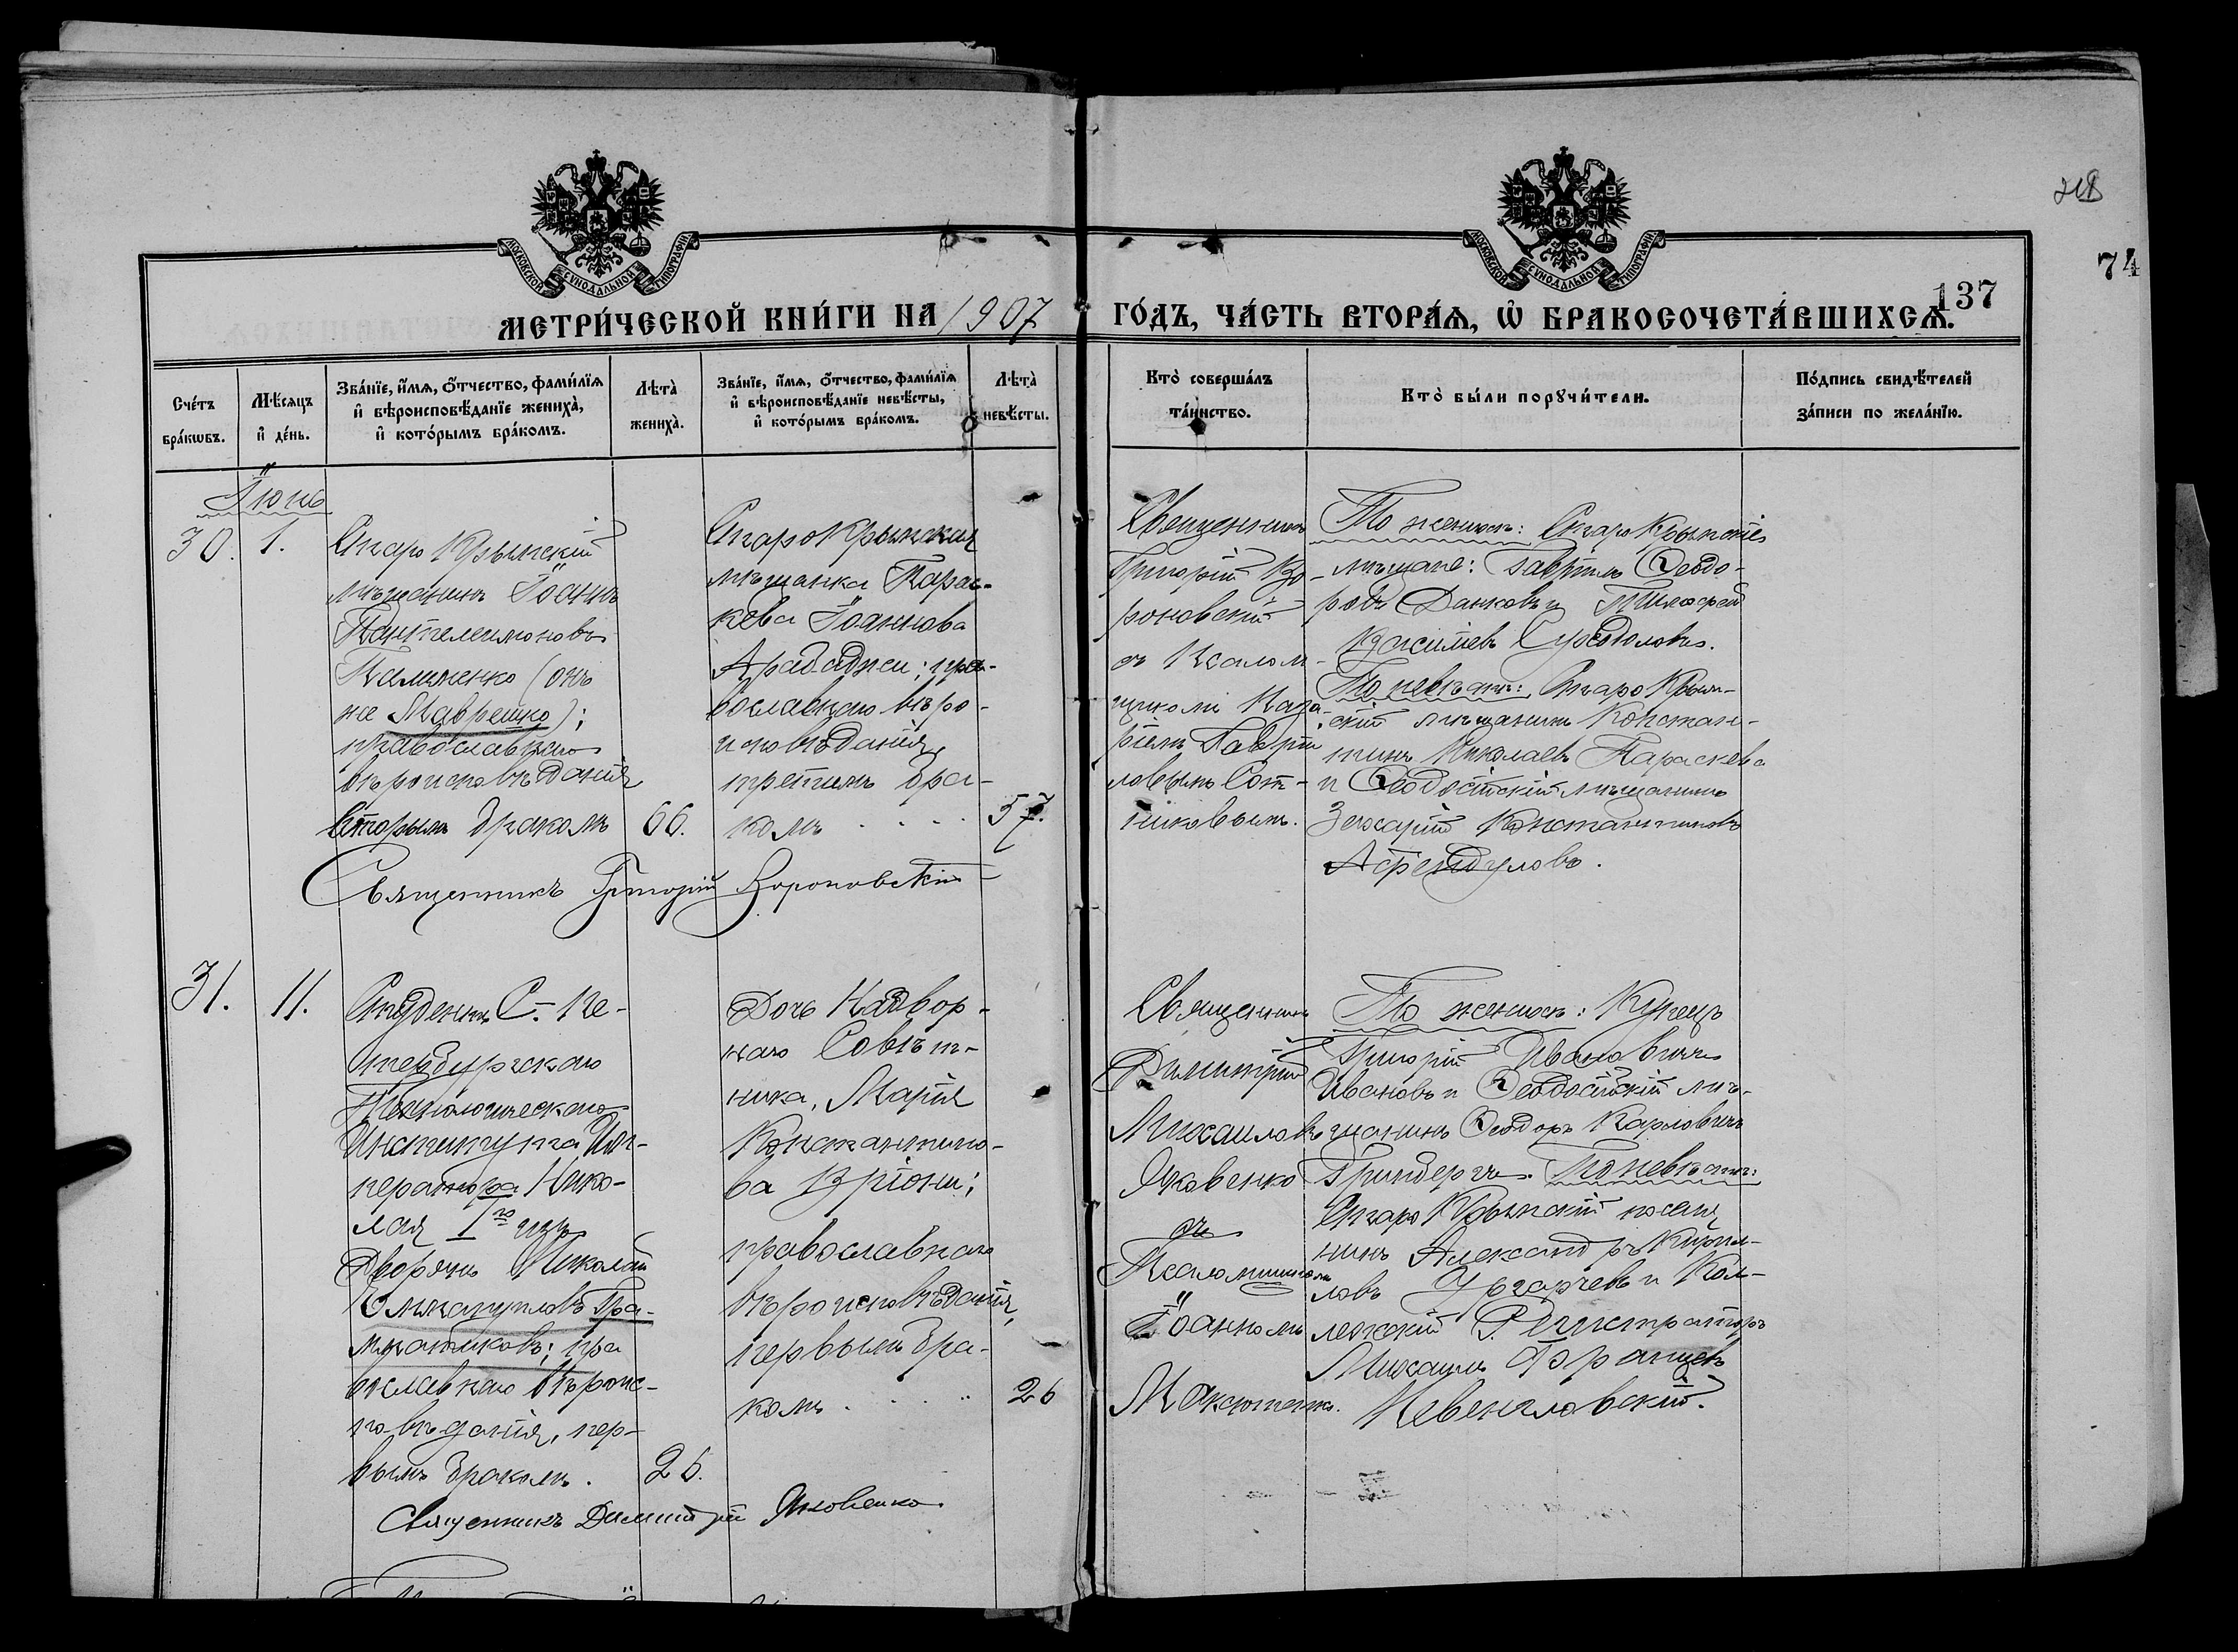 218
74
137
МОСКОВСКОЙ СѴНОДАЛЬНОЙ ТИПОГРАФІИ
МОСКОВСКОЙ СѴНОДАЛЬНОЙ ТИПОГРАФІИ
МЕТРИ́ЧЕСКОЙ КНИ́ГИ НА 1907
ГО́ДЪ, ЧА́СТЬ ВТОРА́Ѧ, Ѡ҆ БРАКОСОЧЕТА́ВШИХСѦ.
Сче́тъ
бра́кѡвъ.
Мѣ́сяцъ
и҆ де́нь.
Зва́нїе, и҆́мѧ, ѻ҆́тчество, фамѝлїѧ
и҆ вѣроисповѣ́данїе женихà,
и҆ кото́рымъ бра́комъ.
Лѣтà
женихà.
Зва́нїе, и҆́мѧ, ѻ҆́тчество, фамѝлїѧ
и҆ вѣроисповѣ́данїе невѣ́сты,
и҆ кото́рымъ бра́комъ.
Лѣтà
невѣ́сты.
Ктò соверша́лъ
та́инство.
Ктò бы́ли порꙋчи́тели.
По́дпись свидѣ́телей
за́писи по жела́нїю.
Іюнь
30. 1.
Старо Крымскій
мѣщанинъ Іоаннъ
Пантелеимоновъ
Калиненко (онъ
же Мавренко);
православнаго
вѣроисповѣданія
вторымъ бракомъ 66.
Старокрымская
мѣщанка Парас-
кева Іоаннова
Арабаджи; пра-
вославнаго вѣро-
исповѣданія,
третимъ бра-
комъ . . . . 57.
Священникъ
Григорій Во-
роновскій
съ Псалом-
щикомъ
Гаврі-
ловымъ Сот-
никовымъ.
По женихѣ: Старо Крымскіе
мѣщане: Гавріилъ Ѳеодо-
ровъ Данковъ и Тимофей
Василіевъ
По невѣстѣ: Старо Крым-
скій мѣщанинъ Констан-
тинъ Николаевъ Параскева
и Ѳеодосійскій мѣщанинъ
Захарій Константиновъ
Афендуловъ.
Священникъ Григорій Вороновскій
31. 11.
Студентъ С.-Пе-
тербургскаго
Технологическаго
Института Им-
ператора Нико-
лая I го изъ
Дворянъ Николай
Гра-
матиковъ; пра
вославнаго вѣроис-
повѣданія, пер-
вымъ бракомъ. 26.
Дочь Надвор-
наго Совѣт-
ника, Марія
Константино-
ва Вріони;
православнаго
вѣроисповѣданія,
первымъ бра-
комъ . . . . 26
Священникъ
Димитрій
Михаиловъ
Яковенко
съ
Псаломщикомъ
Іоанномъ
По женихѣ: Купецъ
Григорій Ивановичъ
Ивановъ и Ѳеодосійскій мѣ-
щанинъ Ѳеодоръ Карловичъ
Гринбергъ. По невѣстѣ:
Старо Крымскій поселя
нинъ Александръ Кирил-
ловъ и Кол-
лежскій Регистраторъ
Михаилъ Францевъ
Священникъ Димитрій Яковенко.